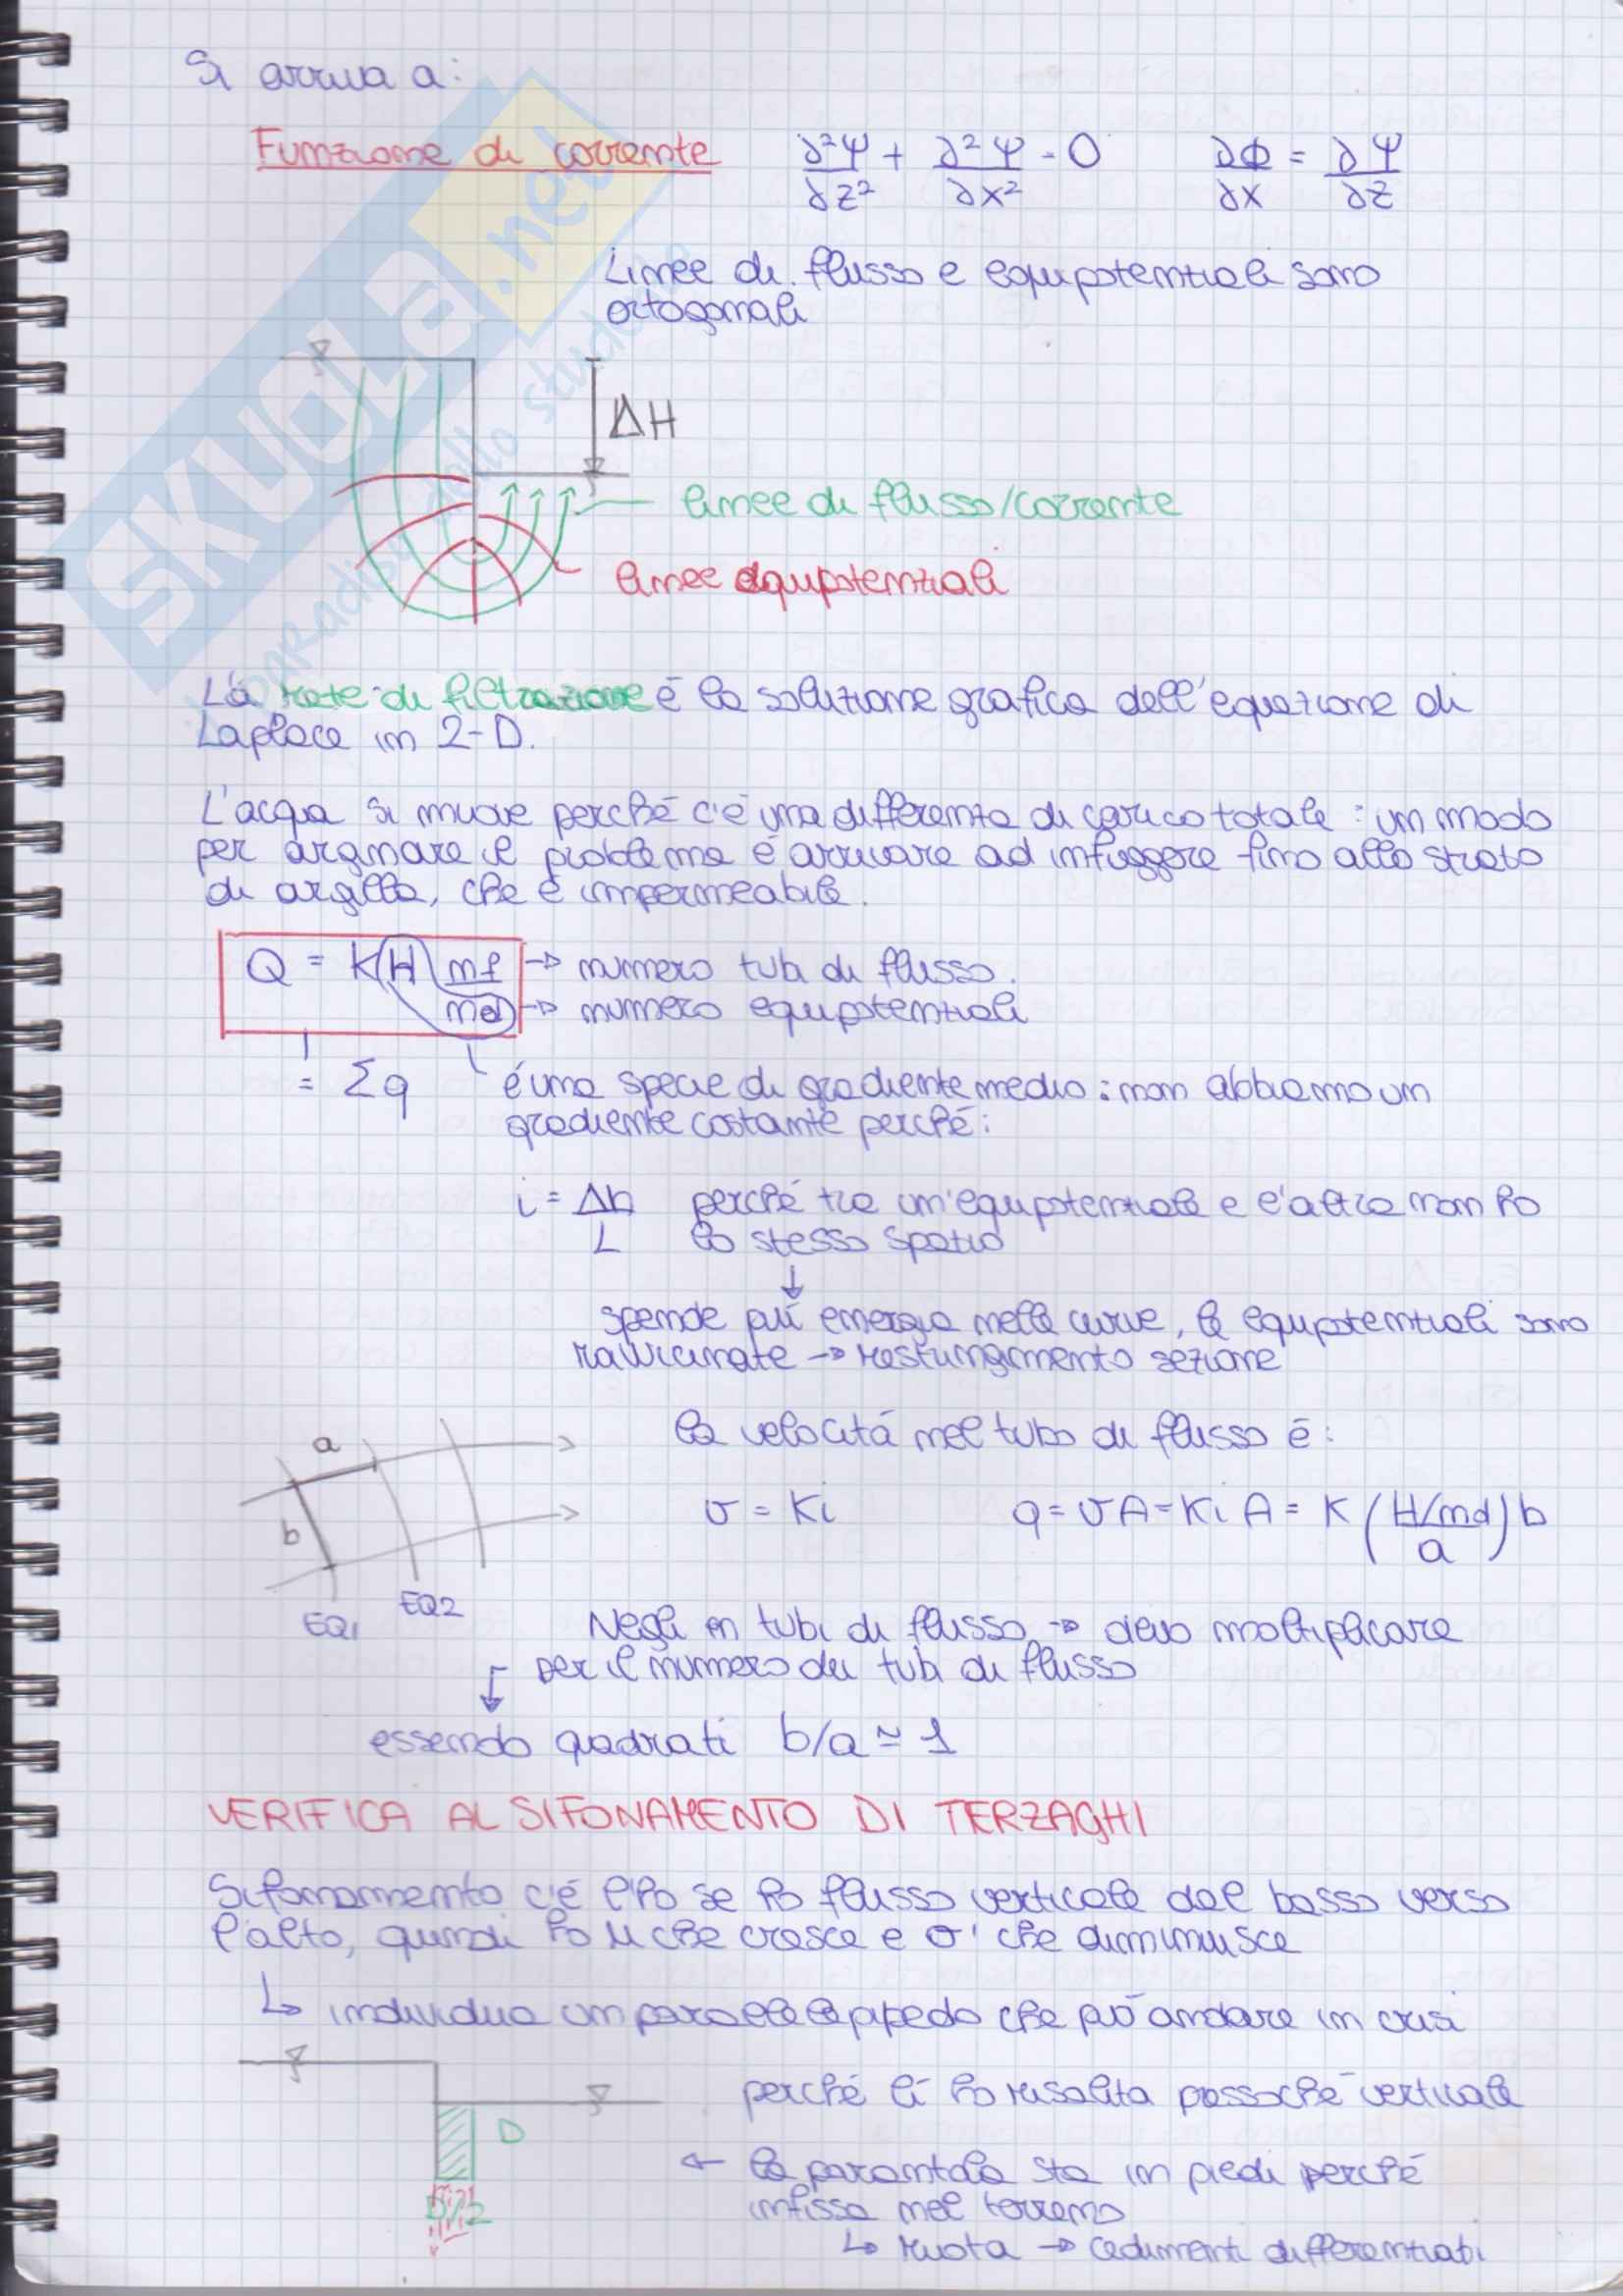 Si arriva a:
Funzione di corrente ∂²Ψ/∂z² + ∂²Ψ/∂x² = 0 ∂Φ/∂x = ∂Ψ/∂z
Linee di flusso e equipotenziali sono
ortogonali
SKUOLA.net
ΔH
linee di flusso/corrente
linee equipotenziali
La rete di filtrazione è la soluzione grafica dell'equazione di
Laplace in 2-D.
L'acqua si muove perché c'è una differenza di carico totale: un modo
per arginare il problema è arrivare ad infiggere fino allo strato
di argilla, che è impermeabile.
Q = K H nf/nd → numero tubi di flusso.
→ numero equipotenziali
= Σq è una specie di gradiente medio: non abbiamo un
gradiente costante perché:
i = Δh/L perché tra un'equipotenziale e l'altra non ho
lo stesso spazio
↓
spende più energia nelle curve, le equipotenziali sono
ravvicinate → restringimento sezione
a
b
EQ1 EQ2
la velocità nel tubo di flusso è:
v = Ki q = vA = KiA = K ((H/nd)/a) b
Negli n tubi di flusso → devo moltiplicare
per il numero dei tubi di flusso
essendo quadrati b/a ≃ 1
VERIFICA AL SIFONAMENTO DI TERZAGHI
Sifonamento c'è l'ho se ho flusso verticale dal basso verso
l'alto, quindi ho u che cresce e σ' che diminuisce
↳ individuo un parallelepipedo che può andare in crisi
perché lì ho risalita pressoché verticale
D
D/2
← la parantola sta in piedi perché
infissa nel terreno
↳ ruota → cedimenti differenziati